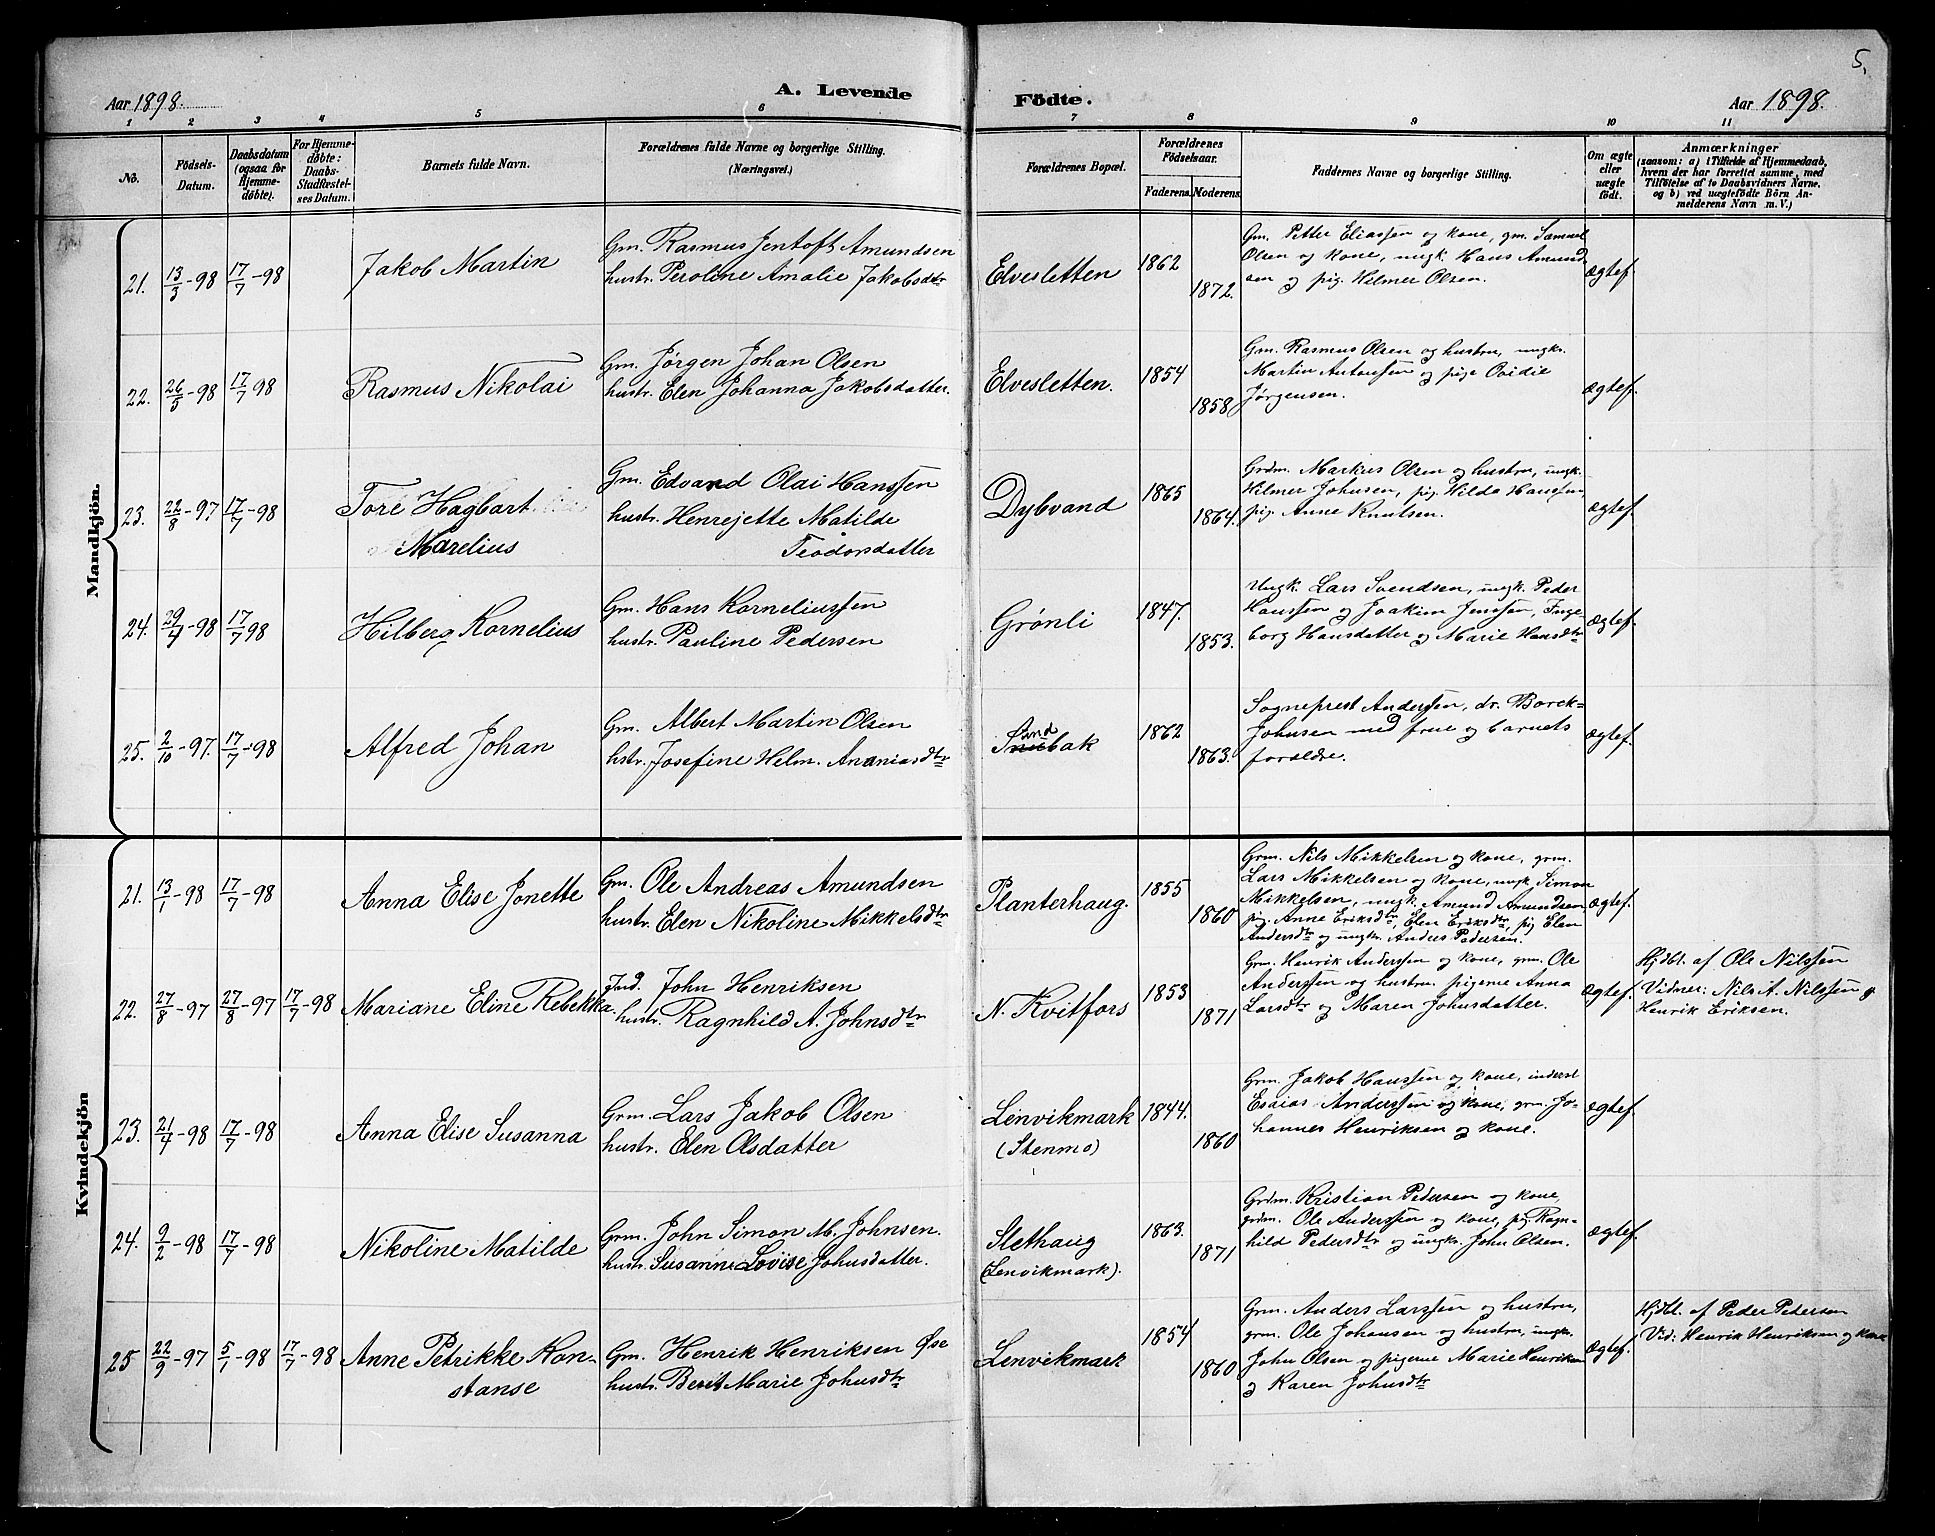 5.
Aar 1898.
A. Levende
Födte.
Aar 1898.
1 2 3 4 5 6 7 8 9 10 11
No.
Födsels-
Datum.
Daabsdatum
(ogsaa for
Hjemme-
döbte).
For Hjemme-
døbte:
Daabs-
Stadfæstel-
ses Datum.
Barnets fulde Navn.
Forældrenes fulde Navne og borgerlige Stilling.
(Næringsvei.)
Forældrenes Bopæl.
Forældrenes
Födselsaar.
Faderens.
Moderens.
Faddernes Navne og borgerlige Stilling.
Om ægte
eller
uægte
födt.
Anmærkninger
(saasom: a) i Tilfælde af Hjemmedaab,
hvem der har forrettet samme, med
Tilföielse af to Daabsvidners Navne,
og b) ved uægtefödte Börn An-
melderens Navn m. V.)
Mandkjön.
21. 13/3-98 17/7-98
Jakob Martin
Gm. Rasmus Jentoft Amundsen
hustr. Peroline Amalie Jakobsdtr
Elvesletten
1862
1872.
Gm. Petter Eliassen og kone, gm. Samuel
Olsen og kone, ungk. Hans Amund
sen og pig. Helmer Olsen.
ægtef.
22. 26/5-98 17/7 98
Rasmus Nikolai
Gm. Jørgen Johan Olsen
hustr. Elen Johanna Jakobsdatter.
Elvesletten.
1854
1858
Gm. Rasmus Olsen og hustru, ungkr.
Martin Antonsen og pige Ovidie
Jørgensen.
ægtef.
23. 22/8-97 17/7-98
Tore Hagbart
Marelius
Gm. Edvard Olai Hanssen
hustr. Henrejette Matilde
Teodorsdatter
Dybvand
1865
1864.
Grdm. Markus Olsen og hustru, ungk.
Hilmer Johnsen, pig. Hilda Hanssen,
pig. Anne Knutsen.
ægtef.
24. 29/4-98 17/7 98
Hilberg Kornelius
Gm. Hans Korneliussen
hustr. Pauline Pedersen
Grønli
1847.
1853.
Ungk. Lars Svendsen, ungk. Peder
Hanssen og Joakim Jenssen, Inge-
borg Hansdatter og Marie Hansdtr
ægtef.
25. 2/10-97. 17/7-98
Alfred Johan
Gm. Albert Martin Olsen
hstr. Josefine Helm. Ananiasdtr
Sandbak
1862
1863.
Sogneprest Anderssen, dr. Borck-
Johnsen med frue og barnets
forældre.
ægtef.
Kvindekjön
21. 13/1-98 17/7-98
Anna Elise Jonette
Gm. Ole Andreas Amundsen
hustr. Elen Nikoline Mikkelsdtr
Planterhaug.
1855
1860
Grm. Nils Mikkelsen og kone, grm.
Lars Mikkelsen og kone, ungk. Simon
Mikkelsen, ungk. Amund Amundsen,
pig. Anne Eriksdtr, Elen Eriksdtr, pig Elen
Andersdtr og ungkr. Anders Pedersen.
ægtef.
22. 27/8-97 27/8-97 17/7-98
Mariane Eline Rebekka
Ind. John Henriksen
hustr. Ragnhild A. Johnsdtr
N. Kvitfors
1853
1871
Grm. Henrik Anderssen og kone, grm. Ole
Anderssen og hustru pigerne Anna
Larsdtr og Maren Johnsdatter.
ægtef.
Hjdbt. af Ole Nilssen
Vidner: Nils A. Nilssen og
Henrik Eriksen.
23. 21/4-98 17/7-98
Anna Elise Susanna
Grm. Lars Jakob Olsen
hustr. Elen Olsdatter
Lenvikmark
(Stenmo)
1844.
1860
Grm. Jakob Hanssen og kone, inderst
Esaias Anderssen og kone, grm. Jo-
hannes Henriksen og kone.
ægtef.
24. 9/2-98 17/7-98
Nikoline Matilde
Grm. John Simon M. Johnsen.
hustr. Susanna Lovise Johnsdatter.
Slethaug
(Lenvikmark).
1863.
1871
Grdm. Kristian Pedersen og kone,
grdm. Ole Anderssen og kone, pig. Ragn-
hild Pedersdtr og ungkr. John Olsen.
ægtef.
25 22/9-97 5/1-98 17/7-98
Anne Petrikke Kon-
stanse
Gm. Henrik Henriksen Øse
hustr. Berit Marie Johnsdtr
Lenvikmark
1854
1860
Grm. Anders Larssen og hustru,
grm. Ole Johansen og hustru, ungk.
John Olsen og pigerne Marie Henriksen
og Karen Johnsdtr
ægtef.
Hjdbt. af Peder Petersen
Vid: Henrik Henriksen og kone